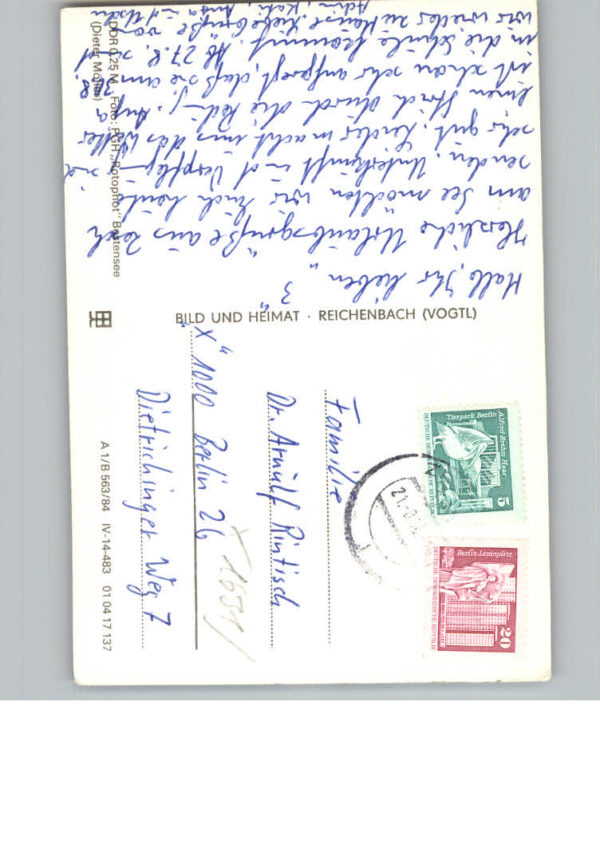 Hallo, Ihr lieben "3"
Herzliche Urlaubsgrüße aus
am See möchten wir Euch heute
senden. Unterkunft und Verpfleg. sind
sehr gut. Leider macht uns das Wetter
einen Strich durch die
ist schon sehr aufgeregt, daß sie am
in die Schule kommt. Ab 27.8. sind
wir wieder zu Hause. Liebe Grüße von
DDR 0,25 M · Foto: PGH „Rotophot" Bestensee
BILD UND HEIMAT · REICHENBACH (VOGTL)
Familie
Dr. Arnulf Rintisch
"X" 1000 Berlin 26
X 1651/
Dietrichinger Weg 7
A 1/B 563/84 IV-14-483 01 04 17 137
Tierpark Berlin
Alfred-Brehm-Haus
5
DEUTSCHE DEMOKRATISCHE REPUBLIK
Berlin-Leninplatz
20
DEUTSCHE DEMOKRATISCHE REPUBLIK